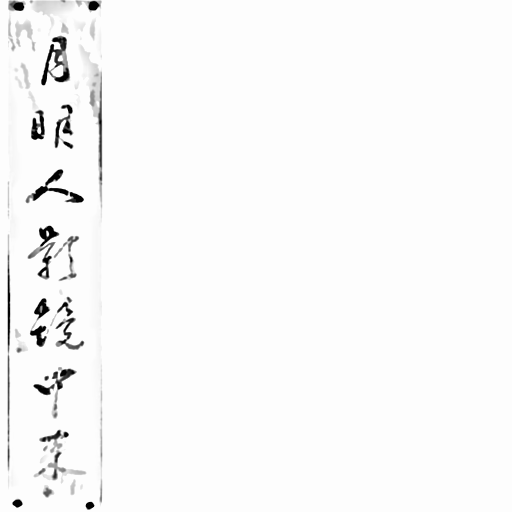 月明人影鏡中来